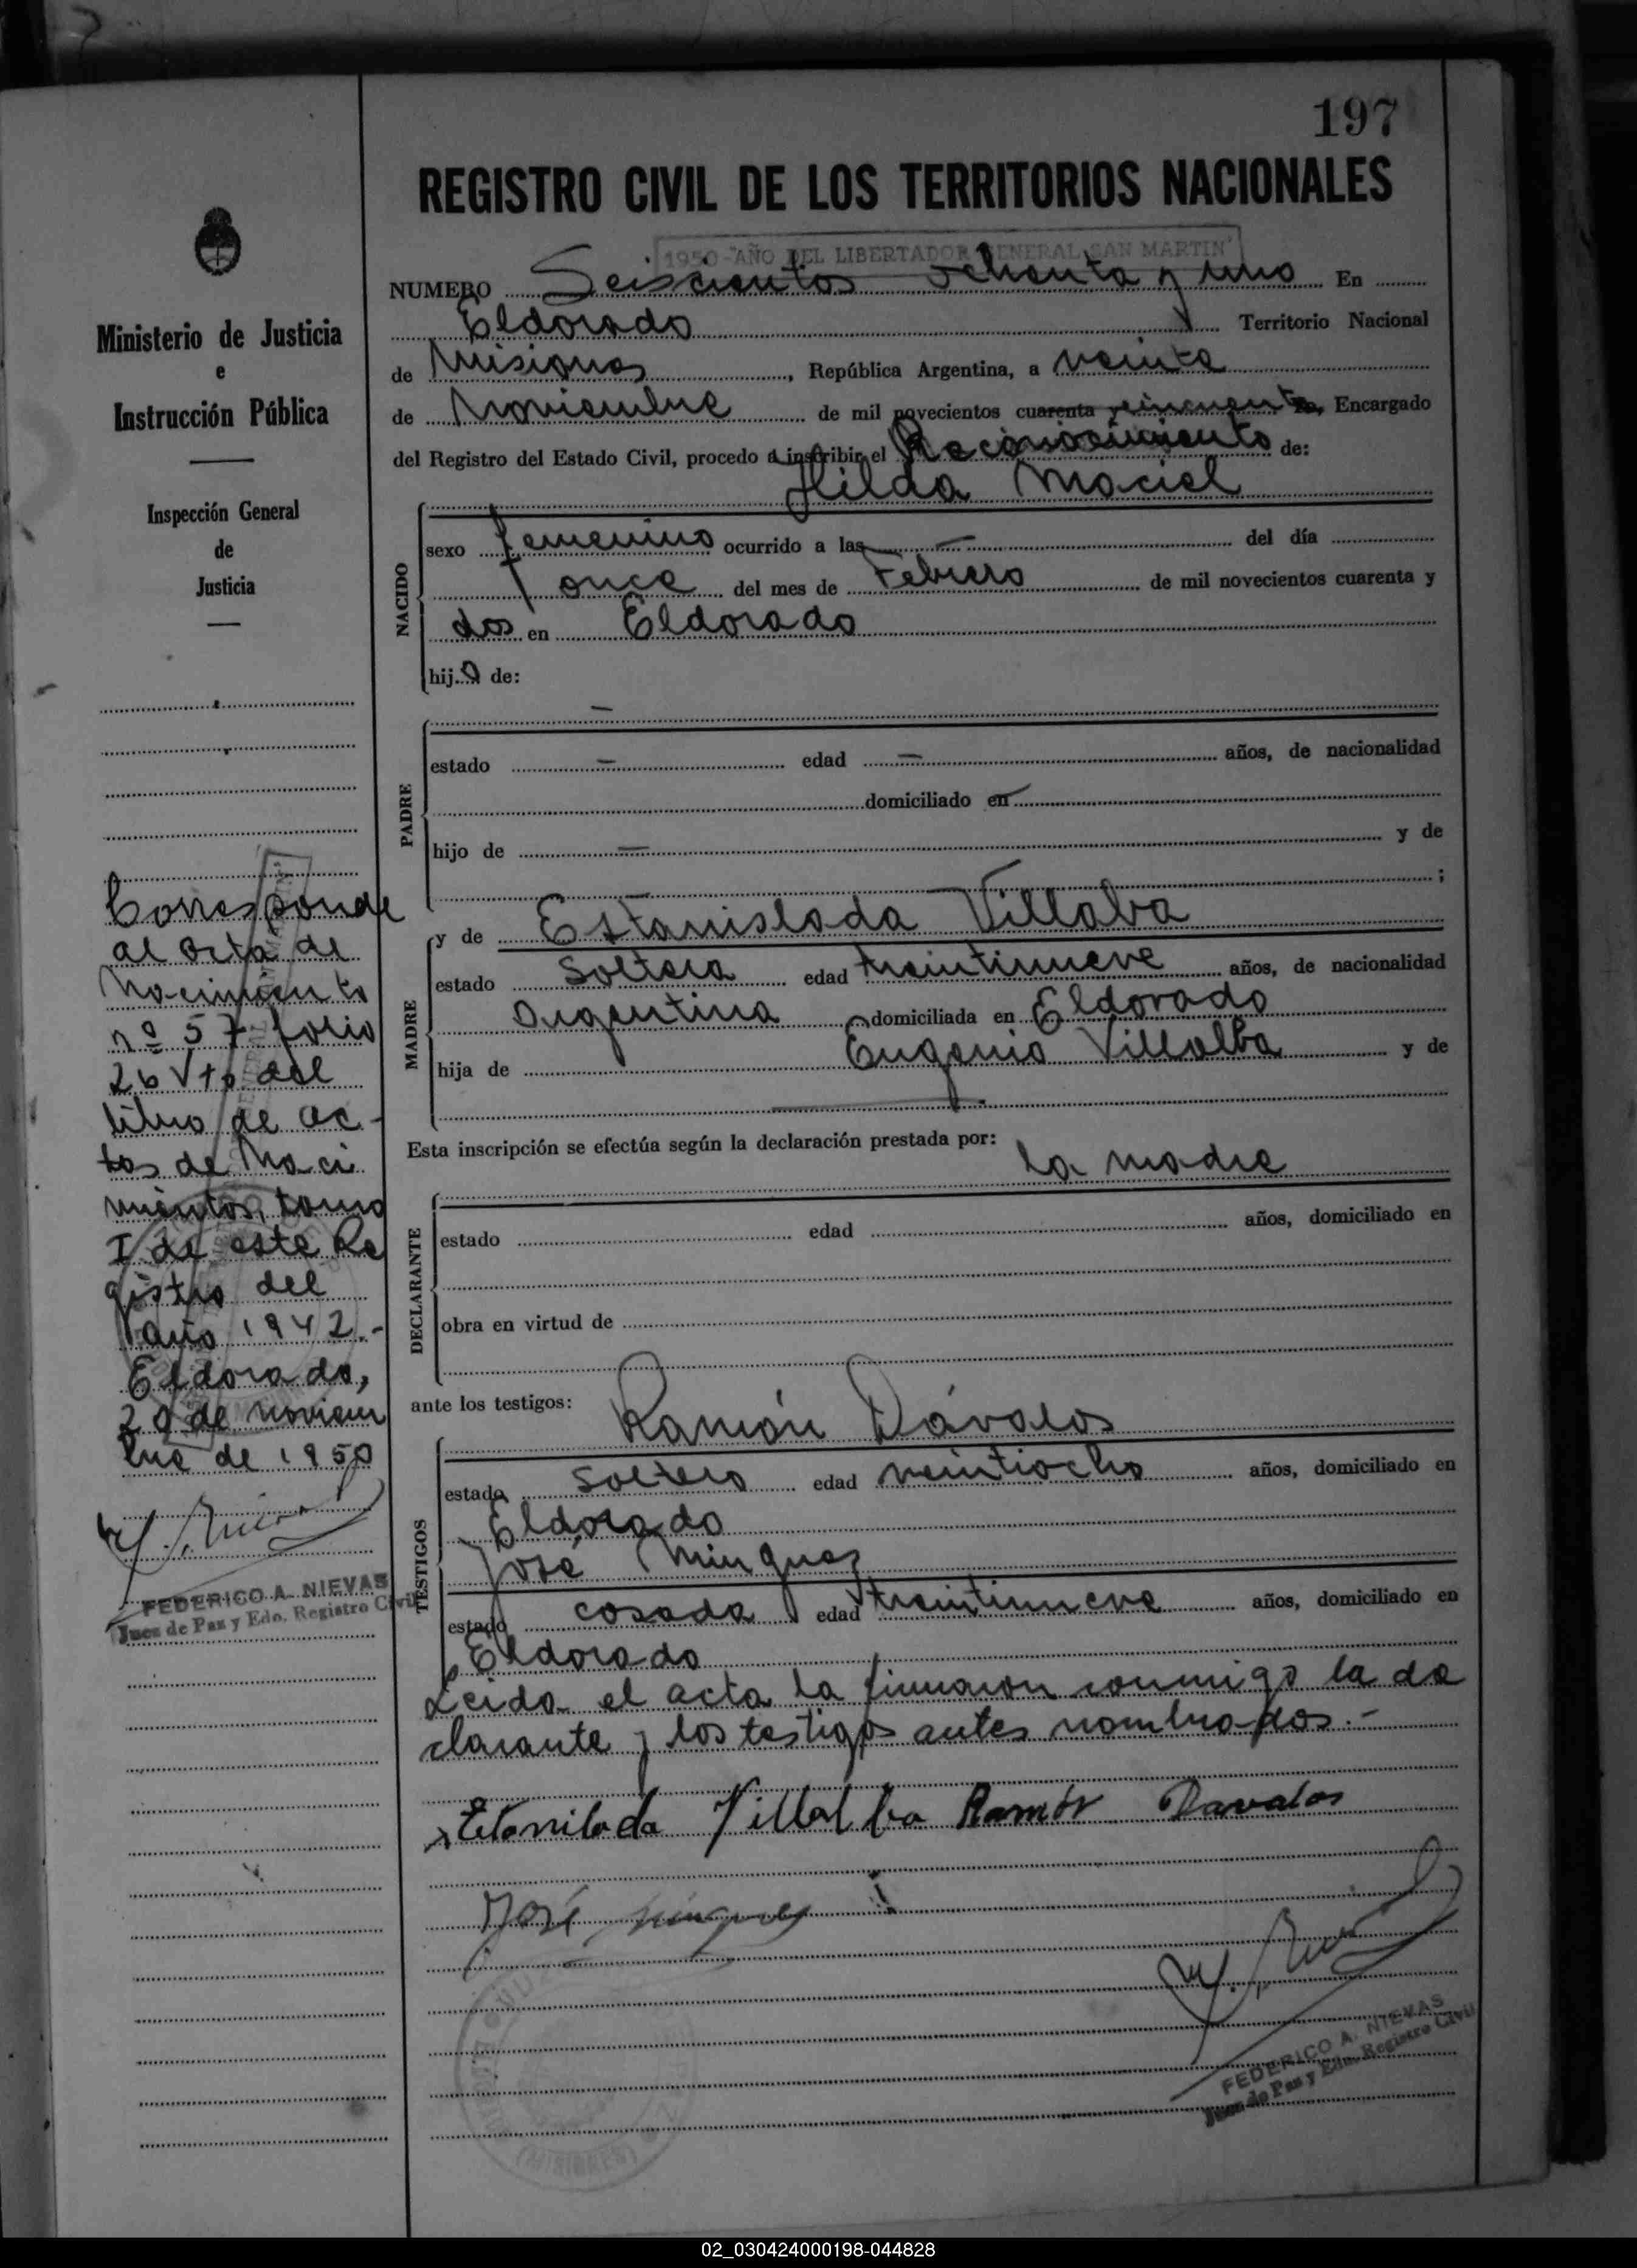 197
REGISTRO CIVIL DE LOS TERRITORIOS NACIONALES
1950 "AÑO DEL LIBERTADOR GENERAL SAN MARTIN"
NUMERO Seiscientos ochenta y uno En
Eldorado Territorio Nacional
de Misiones, República Argentina, a veinte
de Noviembre de mil novecientos cuarenta y cincuenta, Encargado
del Registro del Estado Civil, procedo a inscribir el Reconocimiento de:
Hilda Maciel
NACIDO
sexo femenino ocurrido a las — del día
once del mes de Febrero de mil novecientos cuarenta y
dos en Eldorado
hija de:
—
PADRE
estado — edad — años, de nacionalidad
domiciliado en
hijo de — y de
;
MADRE
y de Estanislada Villalba
estado Soltera edad treintinueve años, de nacionalidad
Argentina domiciliada en Eldorado
hija de Eugenio Villalba y de
Esta inscripción se efectúa según la declaración prestada por:
la madre
DECLARANTE
estado edad años, domiciliado en
obra en virtud de
ante los testigos:
Ramón Dávalos
TESTIGOS
estado soltero edad veintiocho años, domiciliado en
Eldorado
José Minguez
estado casado edad treintinueve años, domiciliado en
Eldorado
Leida el acta la firmaron conmigo la de
clarante y los testigos antes nombrados.-
Etanilada Villalba Ramón Davalos
José Minguez
FEDERICO A. NIEVAS
Juez de Paz y Edo. Registro Civil
(MISIONES)
Ministerio de Justicia
e
Instrucción Pública
Inspección General
de
Justicia
Corresponde
al acta de
Nacimiento
nº 57 folio
26 Vto del
libro de ac-
tas de Naci
mientos, tomo
I de este Re
gistro del
año 1942.-
Eldorado,
20 de noviem
bre de 1950
FEDERICO A. NIEVAS
Juez de Paz y Edo. Registro Civil
02_030424000198-044828